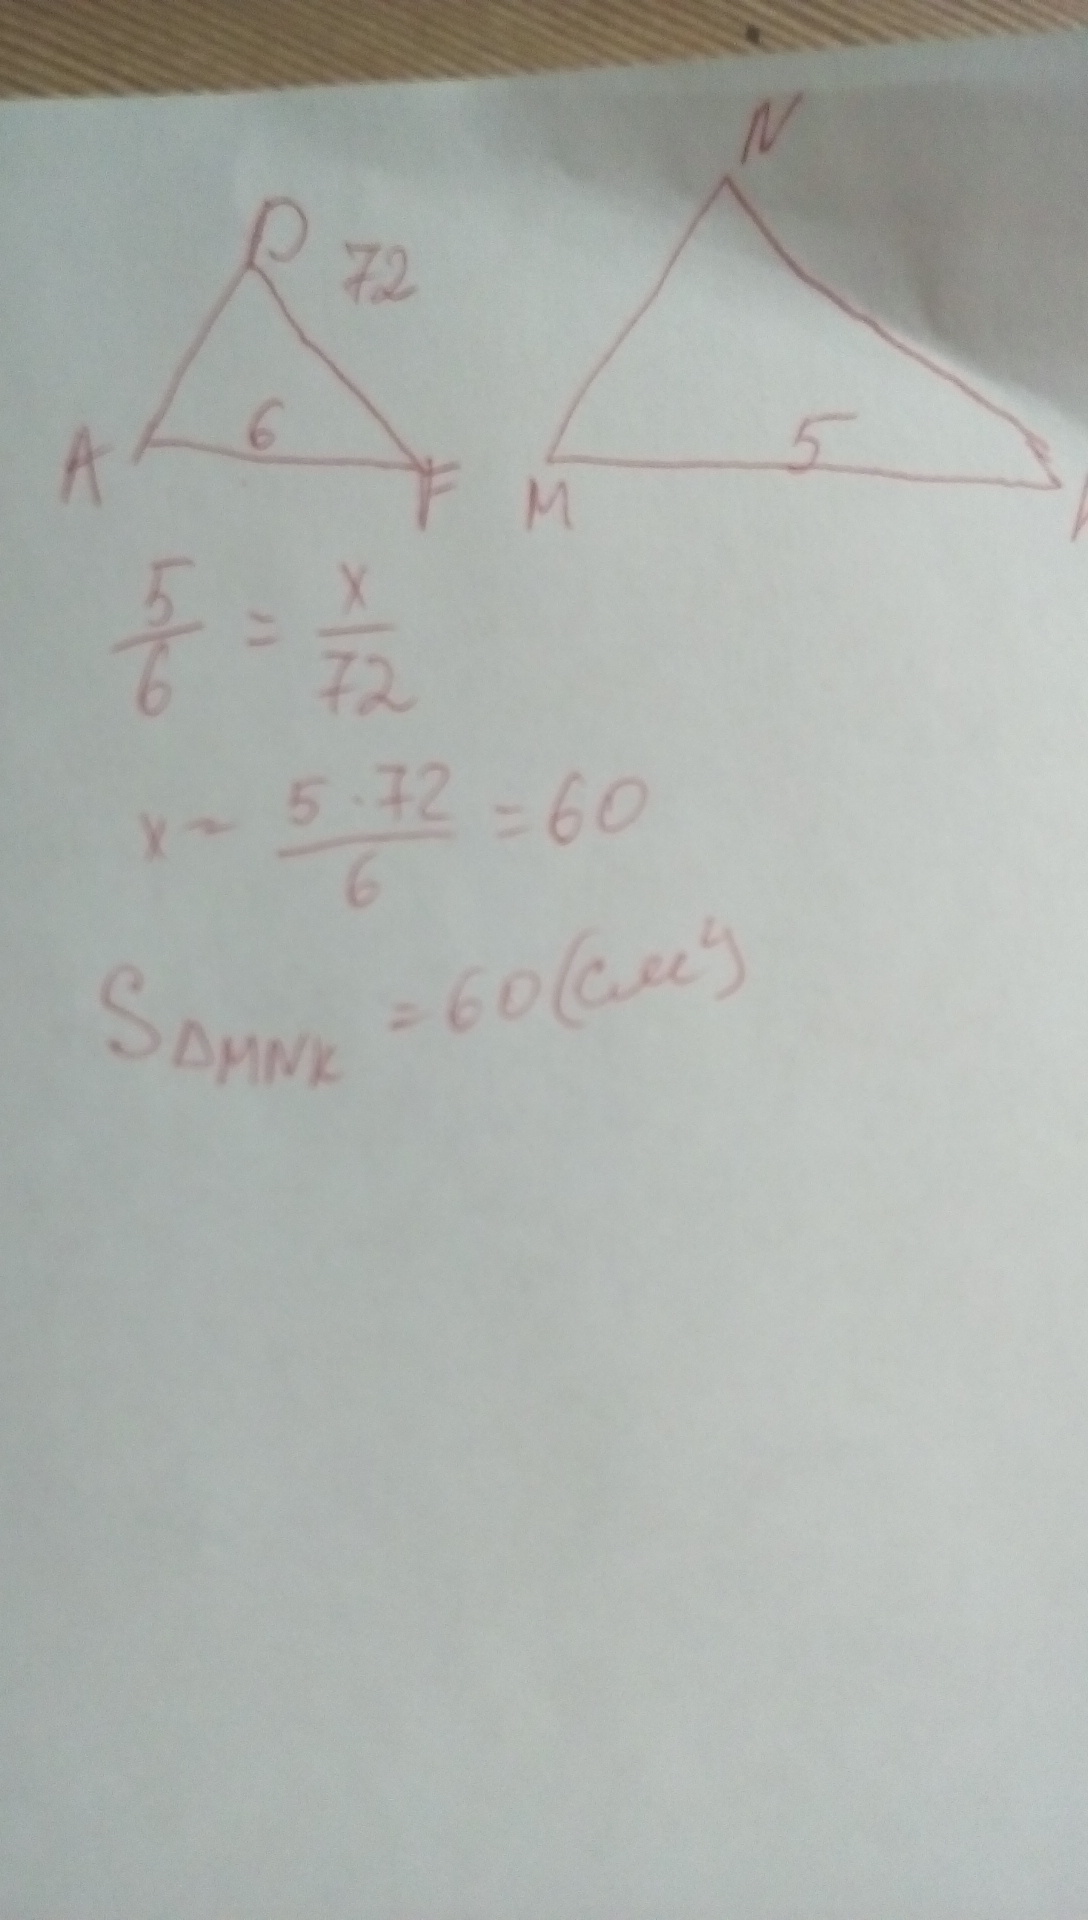 N
D 72
A 6 F M 5
5/6 = x/72
x = 5 · 72/6 = 60
S△MNK = 60 (см²)